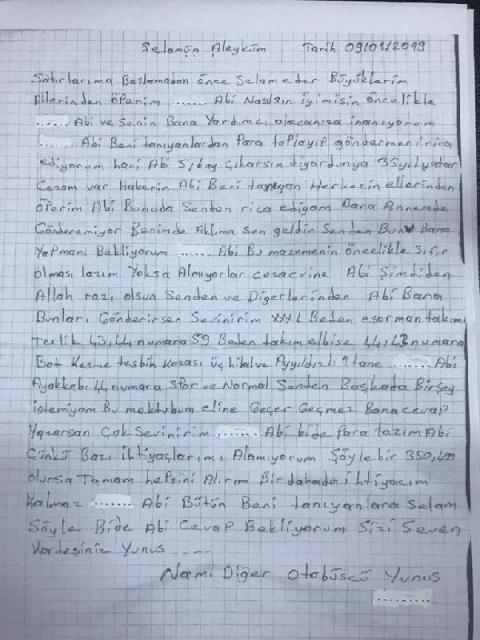 Selamün Aleyküm Tarih 09/01/2019
Satırlarıma Başlamadan önce Selam eder Büyüklerim
Ellerinden Öperim ...... Abi Nasılsın iyimisin öncelikle
...... Abi ve Senin Bana Yardımcı olacanıza inanıyorum
...... Abi Beni tanıyanlardan Para toplayıp göndermeni rica
ediyorum hani Abi 5,6 ay çıkarsın diyordunya 35 yıl yatar
Cezam var Haberin Abi Beni tanıyan Herkesin ellerinden
öperim Abi Bunuda Senden rica ediyom Bana Annemde
Gönderemiyor Benimde Aklıma Sen geldin Senden Bunu Bana
Yapmanı Bekliyorum ...... Abi Bu mazemenin öncelikle Sıfır
olması lazım Yoksa Almıyorlar cezaevine Abi Şimdiden
Allah razı olsun Senden ve Diğerlerinden Abi Bana
Bunları Gönderirsen Sevinirim XXXL Beden eşorman takımı
Terlik 43,44 numara 59 Beden takım elbise 44,43 numara
Bot Kesme tesbih kozası üç hilal ve Ayyıldızlı 1 tane ...... Abi
Ayakkabı 44 numara Spor ve Normal Senden Başkada Birşey
istemiyom Bu mektubum eline Geçer Geçmez Bana cevap
Yazarsan Çok Sevinirim ...... Abi bide Para lazım Abi
Çünkü Bazı ihtiyaçlarımı Alamıyorum Şöyle bir 350,400
olursa Tamam hepsini Alırım Bir dahada ihtiyacım
Kalmaz ...... Abi Bütün Beni tanıyanlara Selam
Söyle Bide Abi Cevap Bekliyorum Sizi Seven
Kardeşiniz Yunus ....
Namı Diğer Otobüscü Yunus
......